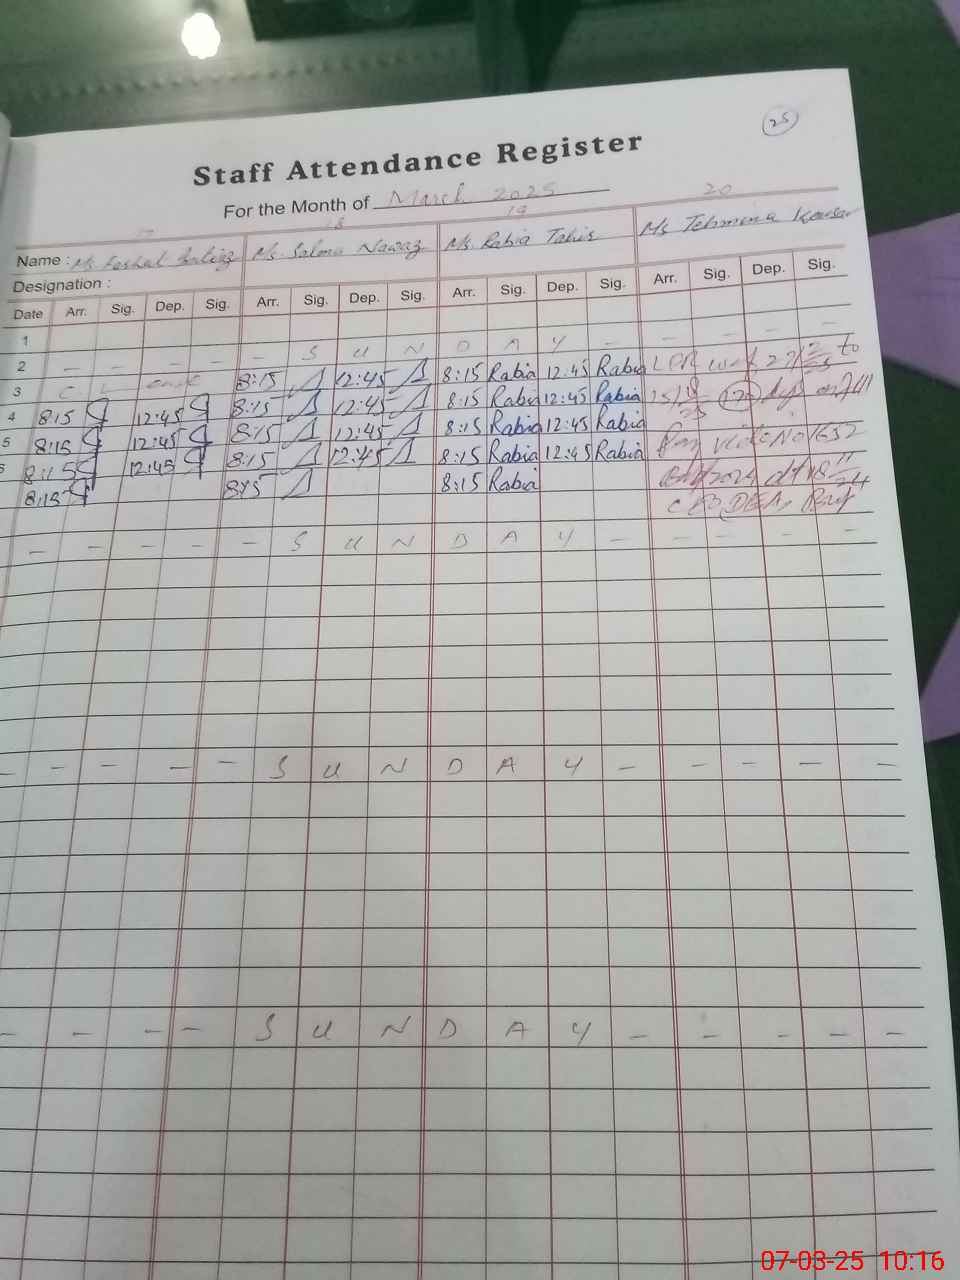 25
Staff Attendance Register
For the Month of March 2025
17 18 19 20
Name : Ms. Ms. Salma Nawaz Ms. Rabia Tahir Ms Tehmina Kousar
Designation :
Date Arr. Sig. Dep. Sig. Arr. Sig. Dep. Sig. Arr. Sig. Dep. Sig. Arr. Sig. Dep. Sig.
1
2 - - - - - S U N D A Y - - - - -
3 C L 8:15 12:45 8:15 Rabia 12:45 Rabia 27/2 to
4 8:15 12:45 8:15 12:45 8:15 Rabia 12:45 Rabia
5 8:15 12:45 8:15 12:45 8:15 Rabia 12:45 Rabia
6 8:15 12:45 8:15 12:45 8:15 Rabia 12:45 Rabia Pay vide No 1652
8:15 8:15 8:15 Rabia
- - - - - S U N D A Y - - - - -
- - - - S U N D A Y - - - - -
- - - - S U N D A Y - - - - -
07-03-25 10:16